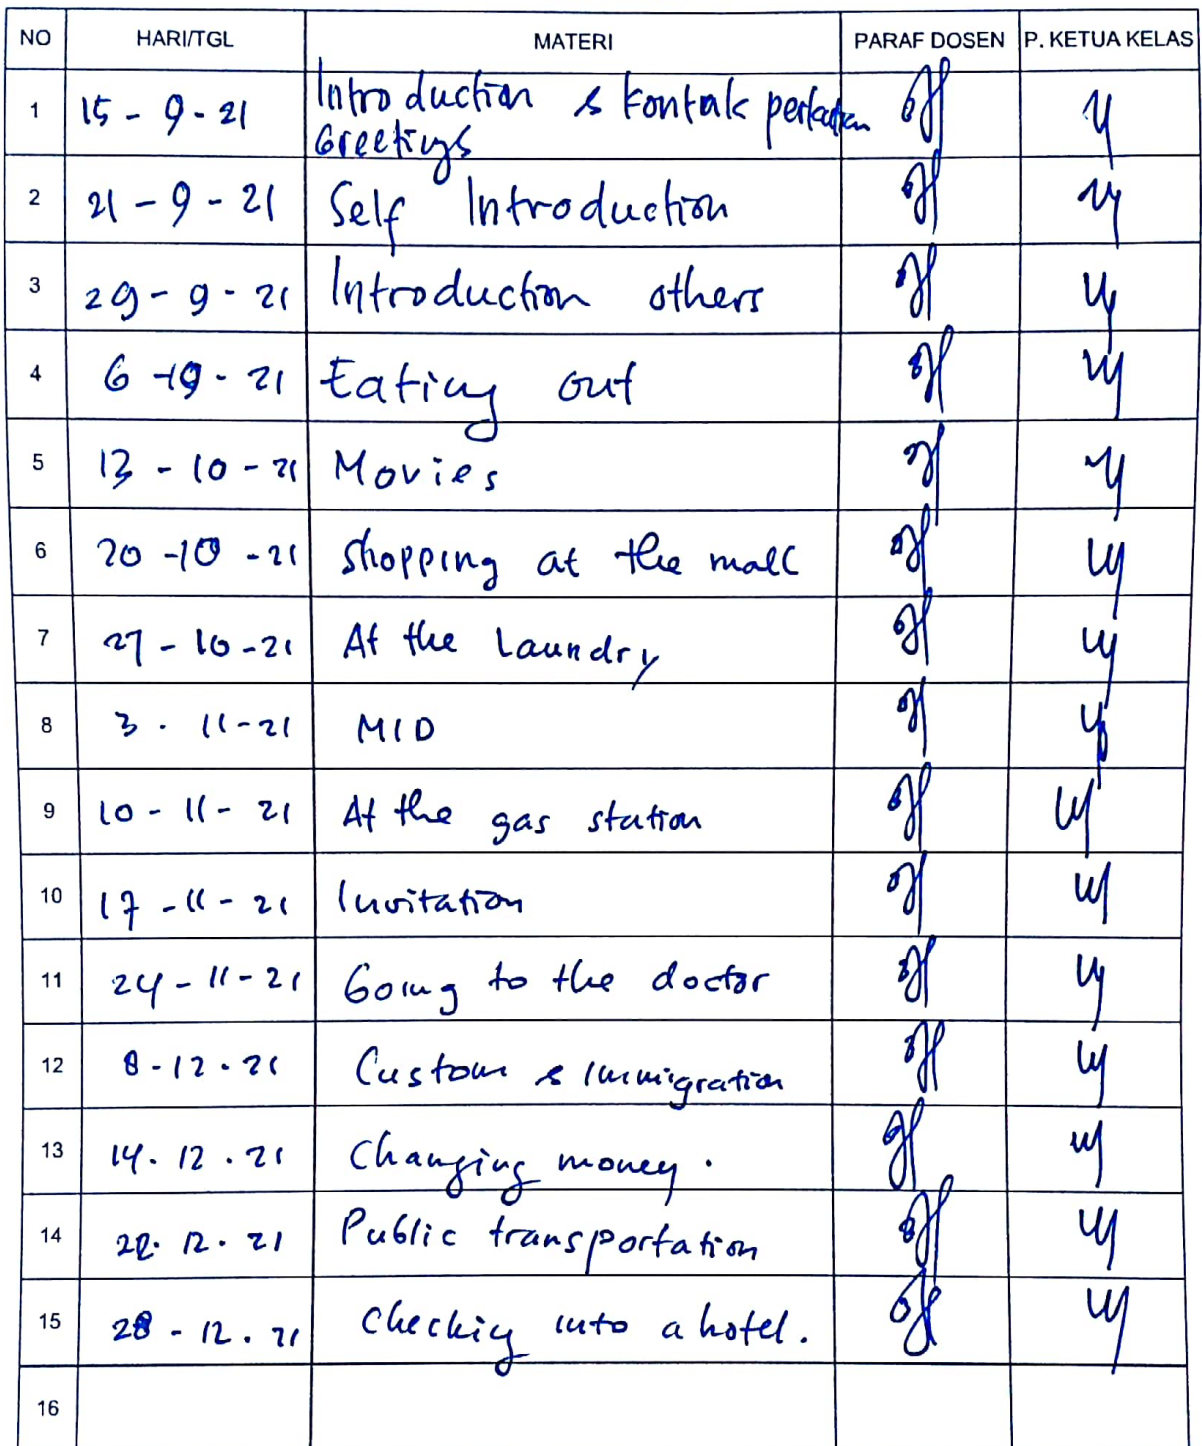 NO HARI/TGL MATERI PARAF DOSEN P. KETUA KELAS
1 15 - 9 - 21 Introduction & kontrak perkuliahan
Greetings
2 21 - 9 - 21 Self Introduction
3 29 - 9 - 21 Introduction others
4 6 - 10 - 21 Eating out
5 13 - 10 - 21 Movies
6 20 - 10 - 21 Shopping at the mall
7 27 - 10 - 21 At the Laundry
8 3 . 11 - 21 MID
9 10 - 11 - 21 At the gas station
10 17 - 11 - 21 Invitation
11 24 - 11 - 21 Going to the doctor
12 8 - 12 . 21 Custom & Immigration
13 14 . 12 . 21 Changing money .
14 22 . 12 . 21 Public transportation
15 28 - 12 . 21 Checking into a hotel .
16